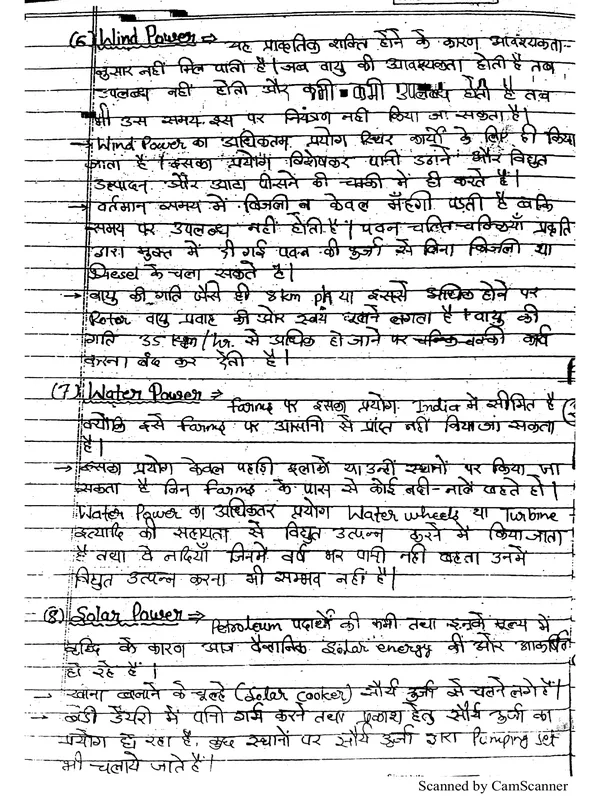 (6) Wind Power ⇒ यह प्राकृतिक शक्ति होने के कारण आवश्यकता-
नुसार नहीं मिल पाती है। जब वायु की आवश्यकता होती है तब
उपलब्ध नहीं होती और कभी कभी उपलब्ध होती है तब
भी उस समय इस पर नियंत्रण नहीं किया जा सकता है।
→ Wind Power का अधिकतम प्रयोग स्थिर कार्यों के लिए ही किया
जाता है। इसका प्रयोग विशेषकर पानी उठाने और विद्युत
उत्पादन और आटा पीसने की चक्की में ही करते हैं।
→ वर्तमान समय में बिजली न केवल मँहगी पड़ती है बल्कि
समय पर उपलब्ध नहीं होती है। पवन चलित चक्कियाँ प्रकृति
द्वारा मुफ्त में दी गई पवन की ऊर्जा से बिना बिजली या
Diesel के चला सकते हैं।
→ वायु की गति जैसे ही 8 km ph या इससे अधिक होने पर
Rotor वायु प्रवाह की ओर स्वयं घूमने लगता है। वायु की
गति 35 km/hr. से अधिक हो जाने पर चक्की कार्य
करना बंद कर देती है।
(7) Water Power ⇒ Farms पर इसका प्रयोग India में सीमित है
क्योंकि इसे Farms पर आसानी से प्राप्त नहीं किया जा सकता
है।
→ इसका प्रयोग केवल पहाड़ी इलाकों या उन्हीं स्थानों पर किया जा
सकता है जिन Farms के पास से कोई नदी-नाले बहते हो।
Water Power का अधिकतर प्रयोग Water wheels या Turbine
इत्यादि की सहायता से विद्युत उत्पन्न करने में किया जाता
है तथा वे नदियाँ जिनमें वर्ष भर पानी नहीं बहता उनमें
विद्युत उत्पन्न करना भी सम्भव नहीं है।
(8) Solar Power ⇒ Petroleum पदार्थों की कमी तथा इनके मूल्य में
वृद्धि के कारण आज वैज्ञानिक Solar energy की ओर आकर्षित
हो रहे हैं।
→ खाना बनाने के चूल्हे (Solar cooker) सौर्य ऊर्जा से चलने लगे हैं।
→ बडी डेयरी में पानि गर्म करने तथा प्रकाश हेतु सौर्य ऊर्जा का
प्रयोग हो रहा है, कुछ स्थानों पर सौर्य ऊर्जा द्वारा Pumping set
भी चलाये जाते हैं।
Scanned by CamScanner